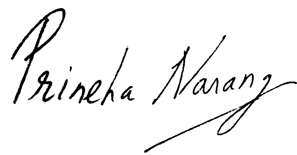 Prineha Narang